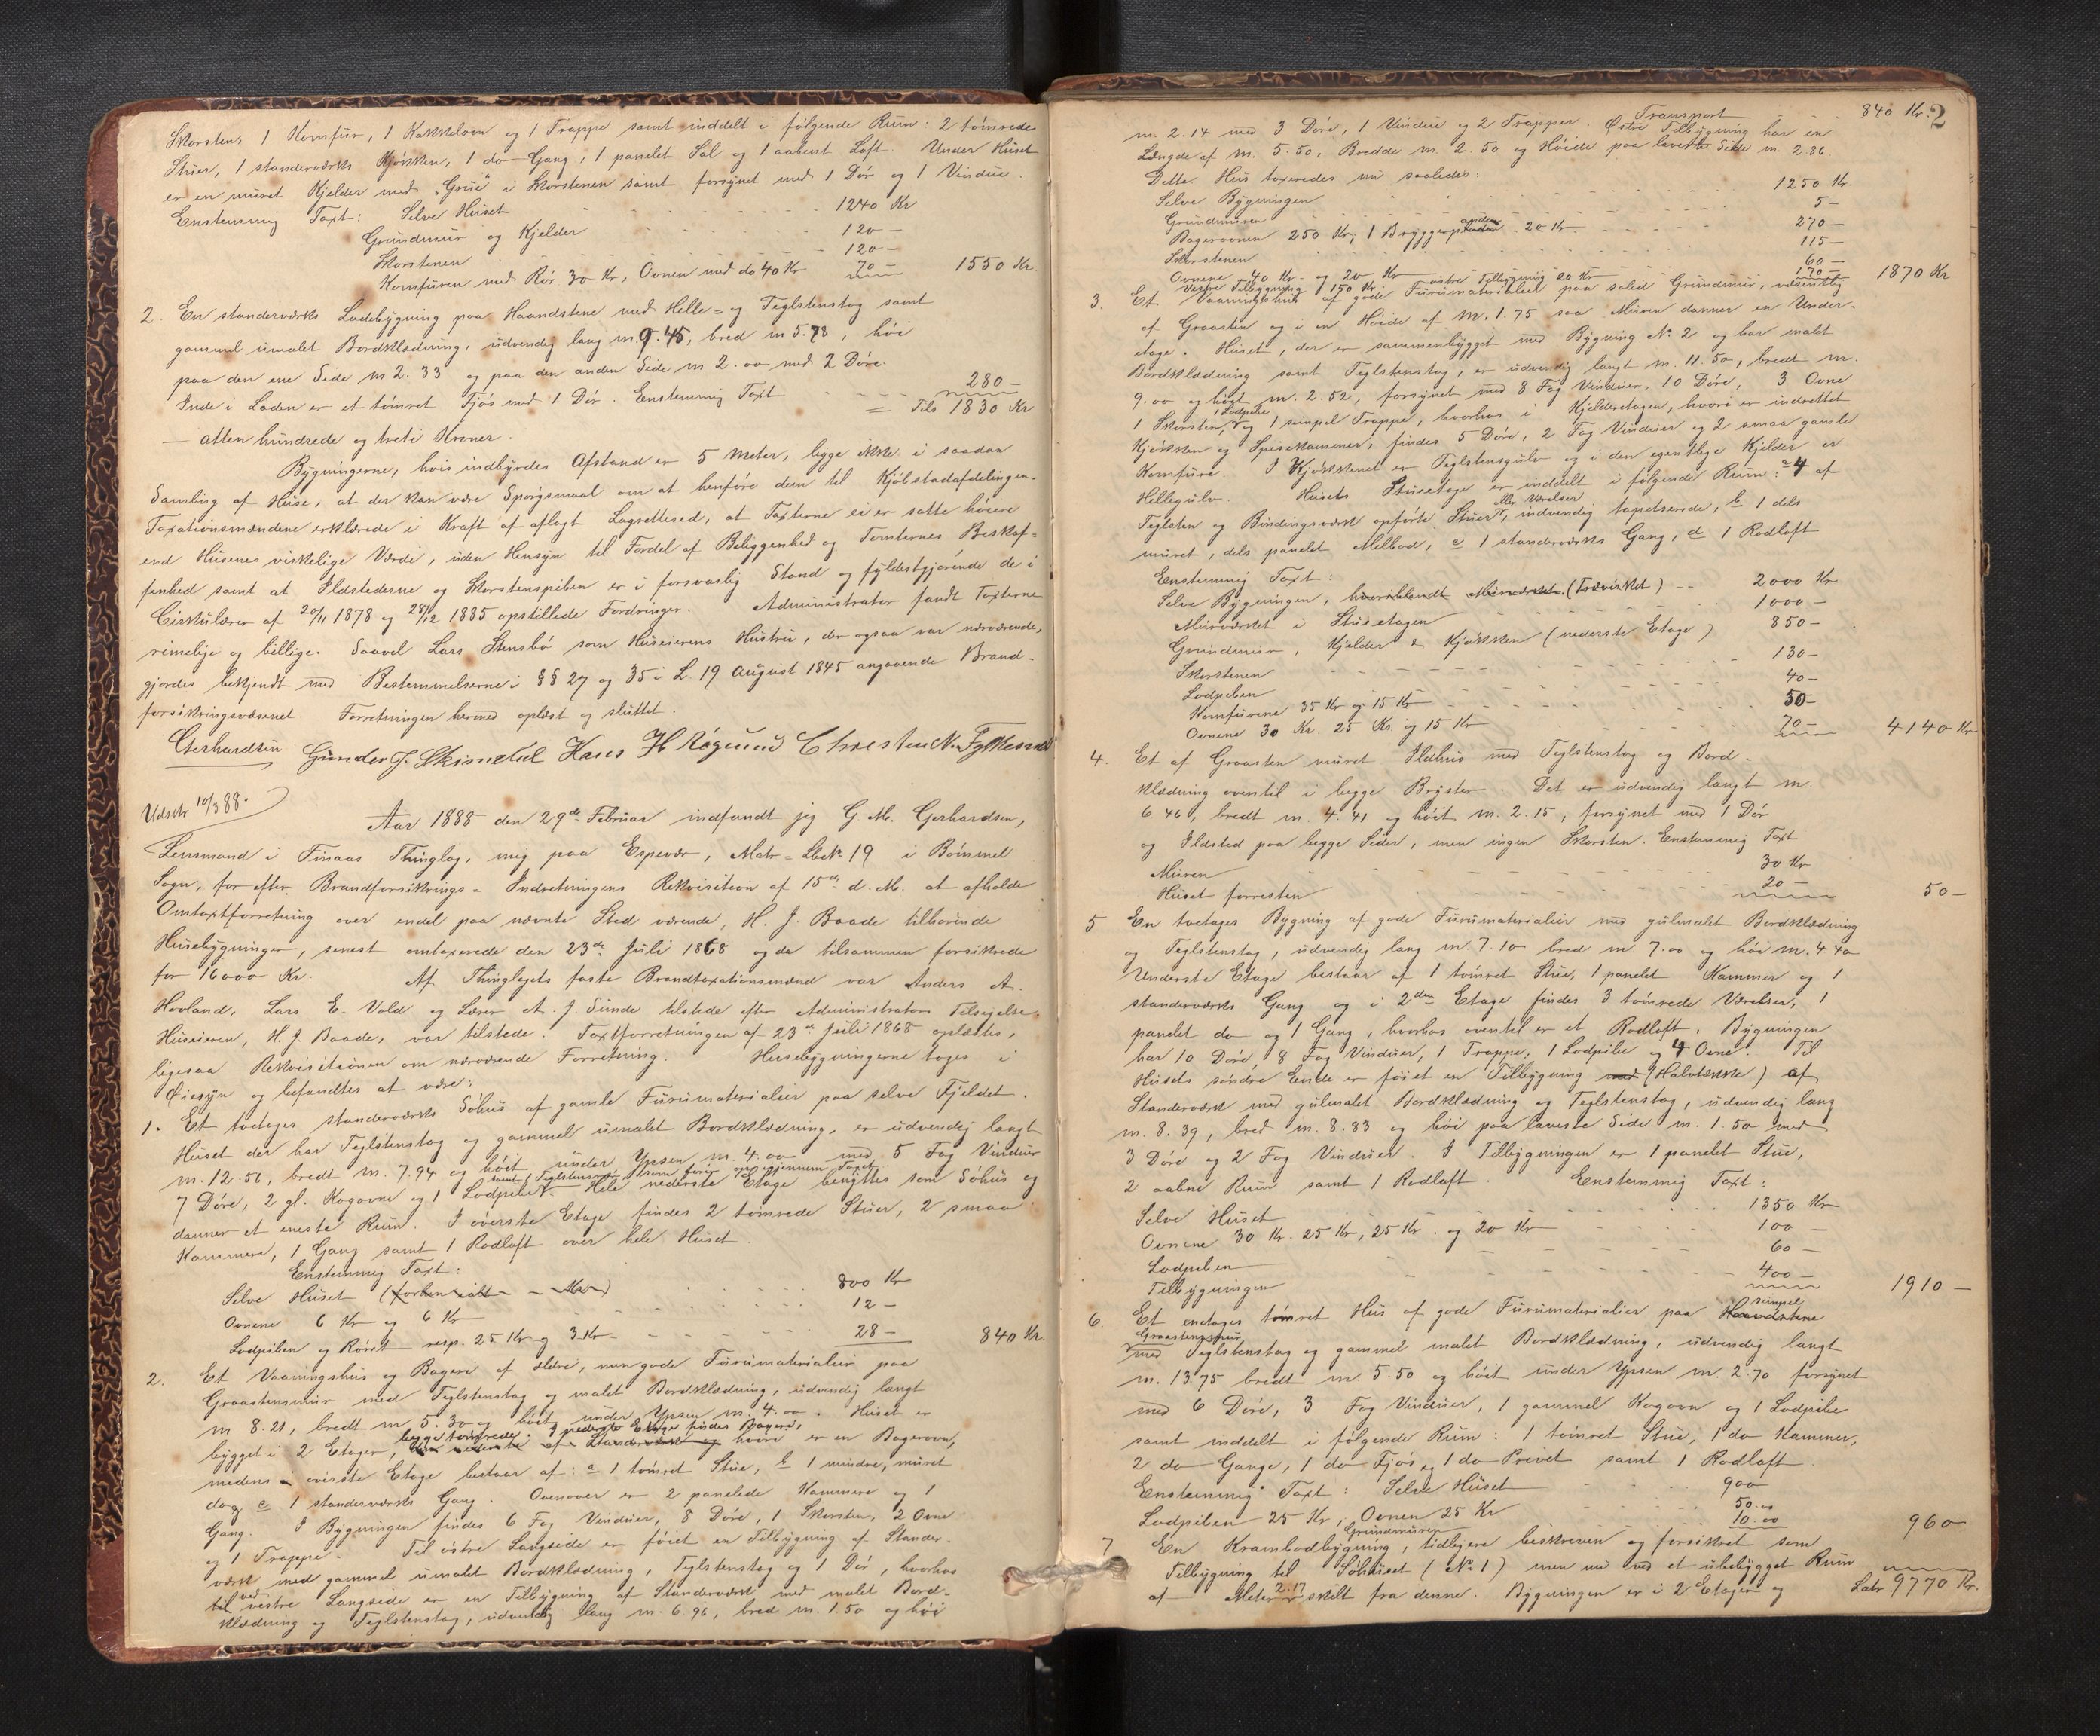 Skorsten, 1 Komfur, 1 Kakkelovn og 1 Trappe samt inddelt i følgende Rum: 2 tømrede
Stuer, 1 standerværks Kjøkken, 1 do Gang, 1 panelet Sal og 1 aabent Loft. Under Huset
er en muret Kjelder med "Grue" i Skorstenen samt forsynet med 1 Dør og 1 Vindue.
Enstemmig Taxt: Selve Huset 1240 Kr
Grundmur og Kjelder 120 —
Skorstenen 120 —
Komfuren med Rør 30 Kr, Ovnen med do 40 Kr 70 — 1550 Kr.
2. En standerværks Ladebygning paa Haandstene med Helle- og Teglstenstag samt
gammel umalet Bordklædning, udvendig lang m 9.45, bred m 5.73, høi
paa den ene Side m 2.33 og paa den anden Side m 2.00 med 2 Døre.
Inde i Laden er et tømret Fjøs med 1 Dør. Enstemmig Taxt 280 —
= Tils 1830 Kr
— atten hundrede og treti Kroner.
Bygningerne, hvis indbyrdes Afstand er 5 Meter, ligge ikke i saadan
Samling af Huse, at der kan være Spørgsmaal om at henføre dem til Kjøbstadafdelingen.
Taxationsmændene erklærede i Kraft af aflagt Lagrettesed, at Taxterne ei er satte høiere
end Husenes virkelige Værdi, uden Hensyn til Fordel af Beliggenhed og Tomternes Beskaf-
fenhed samt at Ildstederne og Skorstenspiben er i forsvarlig Stand og fyldestgjørende de i
Cirkulærer af 20/11 1878 og 28/12 1885 opstillede Fordringer. Administrator fandt Taxterne
rimelige og billige. Saavel Lars Stensbø som Huseierens Hustru, der ogsaa var nærværende,
gjordes bekjendt med Bestemmelserne i §§ 27 og 35 i L. 19 August 1845 angaaende Brand-
forsikringsvæsenet. Forretningen hermed oplæst og sluttet.
Gerhardsen Gunder J. Hans H Røgsund Chresten N.
Udskr 10/3 88.
Aar 1888 den 29de Februar indfandt jeg G M. Gerhardsen,
Lensmand i Finaas Thinglag, mig paa Espevær, Matr. Lbek. 19 i Bømmel
Sogn, for efter Brandforsikrings-Indretningens Rekvisition af 15de d. M. at afholde
Omtaxtforretning over endel paa nævnte Sted værende, H. J. Baade tilhørende
Husebygninger, senest omtaxerede den 23de Juli 1868 og da tilsammen forsikrede
for 16000 Kr. Af Thinglagets faste Brandtaxationsmænd var Anders A.
Hovland, Lars E. Vold og Lærer A. J. Sunde tilstede efter Administrators Tilsigelse.
Huseieren, H. J. Baade, var tilstede. Taxtforretningen af 23de Juli 1868 oplæstes,
ligesaa Rekvisitionen om nærværende Forretning. Husebygningerne toges i
Øiesyn og befandtes at være:
1. Et toetages standerværks Søhus af gamle Furumaterialier paa selve Fjeldet.
Huset der har Teglstenstag og gammel umalet Bordklædning, er udvendig langt
m. 12.56, bredt m. 7.94 og høit under Ypsen m. 4.00 med 5 Fag Vinduer
samt 1 Teglstensrør som fører op igjennem Taget
7 Døre, 2 gl. Kogovne og 1 Lodpibe. Hele nederste Etage benyttes som Søhus og
danner et eneste Rum. I øverste Etage findes 2 tømrede Stuer, 2 smaa
Kammere, 1 Gang samt 1 Rodloft over hele Huset.
Enstemmig Taxt:
Selve Huset 800 Kr
Ovnene 6 Kr og 6 Kr 12 —
Lodpiben og Røret resp. 25 Kr og 3 Kr 28 — 840 Kr.
2. Et Vaaningshus og Bageri af ældre, men gode Furumaterialier paa
Graastensmur med Teglstenstag og malet Bordklædning, udvendig langt
m 8.21, bredt m 5.30 og høit under Ypsen m. 4.00. Huset er
begge tømrede. I nederste Etage findes Bageri,
bygget i 2 Etager, af Standerværk og hvori er en Bagerovn,
medens øverste Etage bestaar af: a 1 tømret Stue, b 1 mindre, muret
do og c 1 standerværks Gang. Ovenover er 2 panelede Kammere og 1
Gang. I Bygningen findes 6 Fag Vinduer, 8 Døre, 1 Skorsten, 2 Ovne
og 1 Trappe. Til østre Langside er føiet en Tilbygning af Stander-
værk med gammel umalet Bordklædning, Teglstenstag og 1 Dør, hvorhos
ved
til vestre Langside er en Tilbygning af Standerværk med malet Bord-
klædning og Teglstenstag, udvendig lang m. 6.96, bred m. 1.50 og høi
Transport 840 Kr. 2
m. 2.14 med 3 Døre, 1 Vindue og 2 Trapper. Østre Tilbygning har en
Længde af m. 5.50, Bredde m. 2.50 og Høide paa laveste Side m. 2.86.
Dette Hus taxeredes nu saaledes:
Selve Bygningen 1250 Kr.
Grundmuren 5 —
Bagerovnen 250 Kr; 1 Bryggerpande 20 Kr 270 —
Skorstenen 115 —
Ovnene 40 Kr. og 20 Kr 60 —
Vestre Tilbygning 150 Kr østre Tilbygning 20 Kr 170 — 1870 Kr
3. Et Vaaningshus af gode Furumaterialier paa solid Grundmur, væsentlig
af Graasten og i en Høide af m. 1.75 saa Muren danner en Under-
etage. Huset, der er sammenbygget med Bygning No 2 og har malet
Bordklædning samt Teglstenstag, er udvendig langt m. 11.50, bredt m.
9.00 og høit m. 2.52, forsynet med 8 Fag Vinduer, 10 Døre, 3 Ovne
1 Lodpibe
1 Skorsten, og 1 simpel Trappe, hvorhos i Kjelderetagen, hvori er indrettet
Kjøkken og Spisekammer, findes 5 Døre, 2 Fag Vinduer og 2 smaa gamle
Komfure. I Kjøkkenet er Teglstensgulv og i den egentlige Kjelder er
Hellegulv. Husets Stueetage er inddelt i følgende Rum: a 4 af
eller Værelser
Teglsten og Bindingsværk opførte Stuer, indvendig tapetserede, b 1 dels
muret, dels panelet Melbod, c 1 standerværks Gang, d 1 Rodloft
Enstemmig Taxt:
Selve Bygningen, hvoriblandt Murværket (Træverket) 2000 Kr
Murværket i Stuetagen 1000 —
Grundmur, Kjelder & Kjøkken (nederste Etage) 850 —
Skorstenen 130 —
Lodpiben 40 —
Komfurene 35 Kr og 15 Kr 50 —
Ovnene 30 Kr. 25 Kr. og 15 Kr 70 — 4140 Kr
4. Et af Graasten muret Ildhus med Teglstenstag og Bord-
klædning oventil i begge Bryster. Det er udvendig langt m.
6.46, bredt m. 4.41 og høit m. 2.15, forsynet med 1 Dør
og Ildsted paa begge Sider, men ingen Skorsten. Enstemmig Taxt
Muren 30 Kr
Huset forresten 20 — 50 —
5 En toetages Bygning af gode Furumaterialier med gulmalet Bordklædning
og Teglstenstag, udvendig lang m 7.10 bred m. 7.00 og høi m. 4.40
Underste Etage bestaar af 1 tømret Stue, 1 panelet Kammer og 1
standerværks Gang og i 2den Etage findes 3 tømrede Værelser, 1
panelet do og 1 Gang, hvorhos oventil er et Rodloft. Bygningen
har 10 Døre, 8 Fag Vinduer, 1 Trappe, 1 Lodpibe og 4 Ovne. Til
Husets søndre Ende er føiet en Tilbygning med (Halvtække) af
Standerværk med gulmalet Bordklædning og Teglstenstag, udvendig lang
m. 8.39, bred m. 8.83 og høi paa laveste Side m. 1.50 med
3 Døre og 2 Fag Vinduer. I Tilbygningen er 1 panelet Stue,
2 aabne Rum samt 1 Rodloft. Enstemmig Taxt:
Selve Huset 1350 Kr
Ovnene 30 Kr. 25 Kr, 25 Kr. og 20 Kr 100 —
Lodpiben 60 —
Tilbygningen 400 — 1910 —
simpel
6. Et enetages tømret Hus af gode Furumaterialier paa Haandstene
Graastensmur
med Teglstenstag og gammel malet Bordklædning, udvendig langt
m. 13.75 bredt m. 5.50 og høit under Ypsen m. 2.70 forsynet
med 6 Døre, 3 Fag Vinduer, 1 gammel Kogovn og 1 Lodpibe
samt inddelt i følgende Rum: 1 tømret Stue, 1 do Kammer,
2 do Gange, 1 do Fjøs og 1 do Privet samt 1 Rodloft.
Enstemmig Taxt: Selve Huset 900
Lodpiben 25 Kr, Ovnen 25 Kr 50.00
Grundmuren 10.00 960
7 En Krambodbygning, tidligere beskreven og forsikret som
Tilbygning til Søhuset (No 1) men nu ved et ubebygget Rum
af 2.17 Meter skilt fra denne. Bygningen er i 2 Etager og Latr. 9770 Kr.